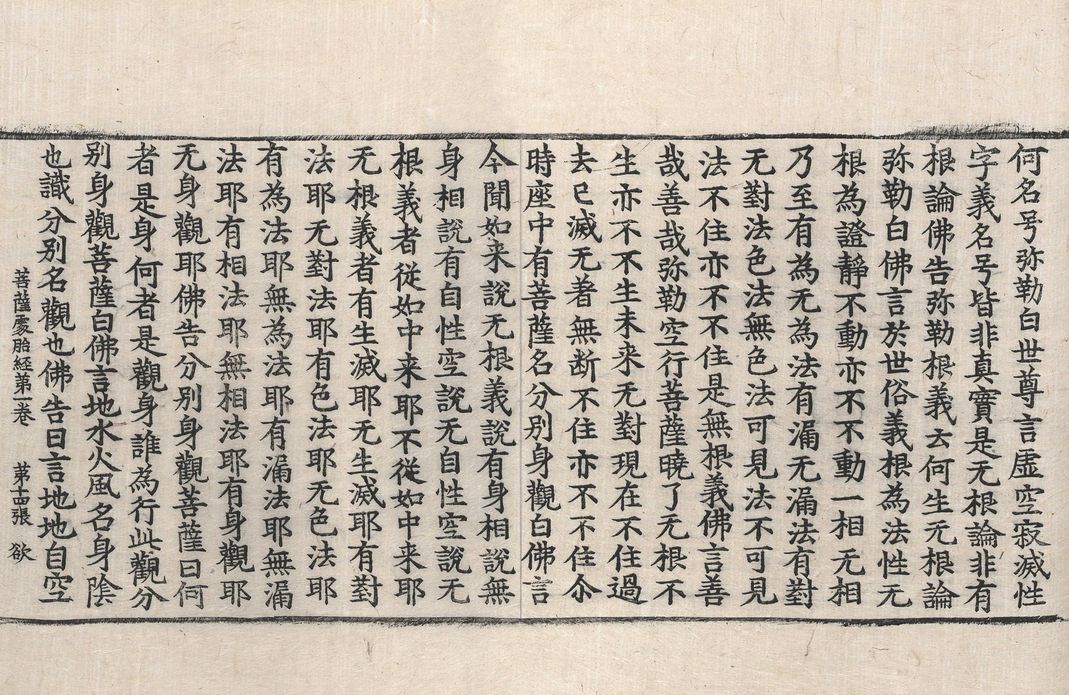 何名号弥勒白世尊言虛空寂滅性
字義名号皆非真實是无根論非有
根論佛告弥勒根義云何生无根論
弥勒白佛言於世俗義根為法性无
根為證靜不動亦不不動一相无相
乃至有為无為法有漏无漏法有對
无對法色法無色法可見法不可見
法不住亦不不住是無根義佛言善
哉善哉弥勒空行菩薩曉了无根不
生亦不不生未来无對現在不住過
去已滅无著無断不住亦不不住尒
時座中有菩薩名分別身觀白佛言
今聞如来說无根義說有身相說無
身相說有自性空說无自性空說无
根義者從如中来耶不從如中来耶
无根義者有生滅耶无生滅耶有對
法耶无對法耶有色法耶无色法耶
有為法耶無為法耶有漏法耶無漏
法耶有相法耶無相法耶有身觀耶
无身觀耶佛告分別身觀菩薩曰何
者是身何者是觀身誰為行此觀分
別身觀菩薩白佛言地水火風名身陰
也識分別名觀也佛告曰言地地自空
菩薩處胎経苐一卷 苐十四張 欲